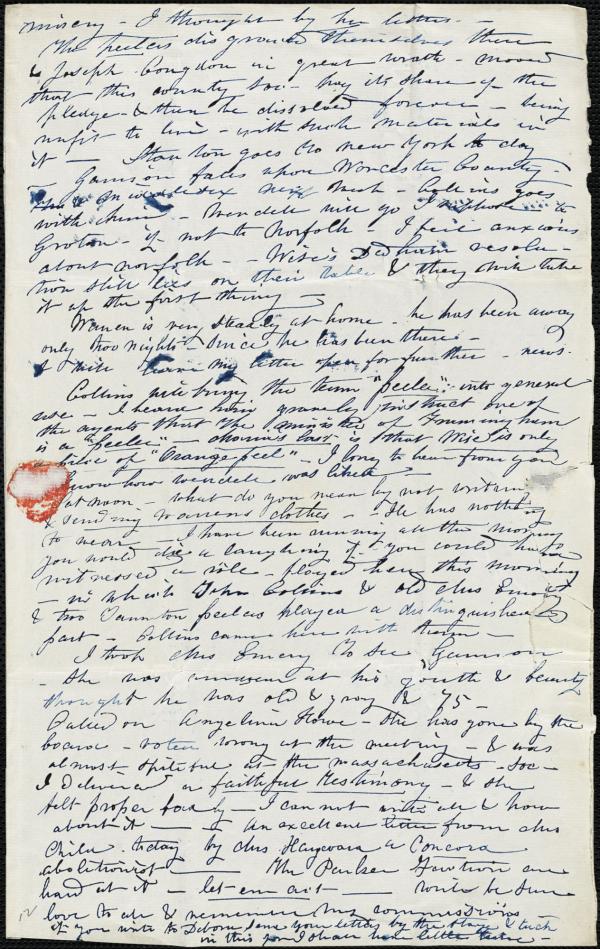 misery - I thought by her letter. -
The feelers disgraced themselves there
& Joseph Congdon in great wrath - moved
that this county Soc - pay its share of the
pledge - & then be dissolved forever - being
unfit to live - with such materials in
it - Stanton goes to New York to day
- Garrison faces upon Worcester County -
& Middlesex next week - Collins goes
with him - Wendell will go I suppose to
Groton - if not to Norfolk - I feel anxious
about Norfolk - - Wise's Dedham resolu-
tion still lies on their table & they will take
it up the first thing -
Warren is very steady at home - he has been away
only two nights - since he has been there -
I will leave my letter open for further - news.
Collins will bring the term "feeler" into general
use - I heard him gravely instruct one of
the agents that the minister of Framingham
is a "feeler" - last is that Wise is only
a piece of "Orange peel" - I long to hear from you
& know how Wendell was liked
at noon - what do you mean by not writing
& sending Warrens clothes - He has nothing
to wear - I have been running all the morning
you would die a laughing if you could have
witnessed a role - played here this morning
- in which John Collins & old Mrs Emery
& two Taunton feelers played a distinguished
part - Collins came here with them -
I took Mrs Emery to see Garrison
- She was at his youth & beauty
thought he was old & gray & 75 -
Called on Angelina Howe - She has gone by the
board - voted wrong at the meeting - & was
almost spiteful at the Massachusetts - Soc -
I delivered a faithful testimony - & she
felt proper badly - I can not write all & how
about it - - An excellent letter from Mrs
Child today by Mrs Haywara a Concord
abolitionist - The Parker Faction are
hard at it - let em ait - write be sure
love to all & remember my commissions -
if you write to Debora send your letters by the stage & tuck
in this for I shall her letter there